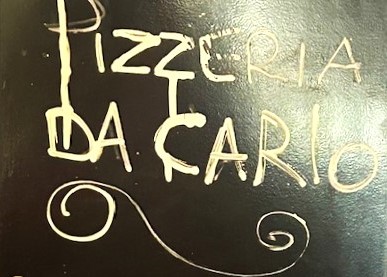 PIZZERIA
DA CARlO